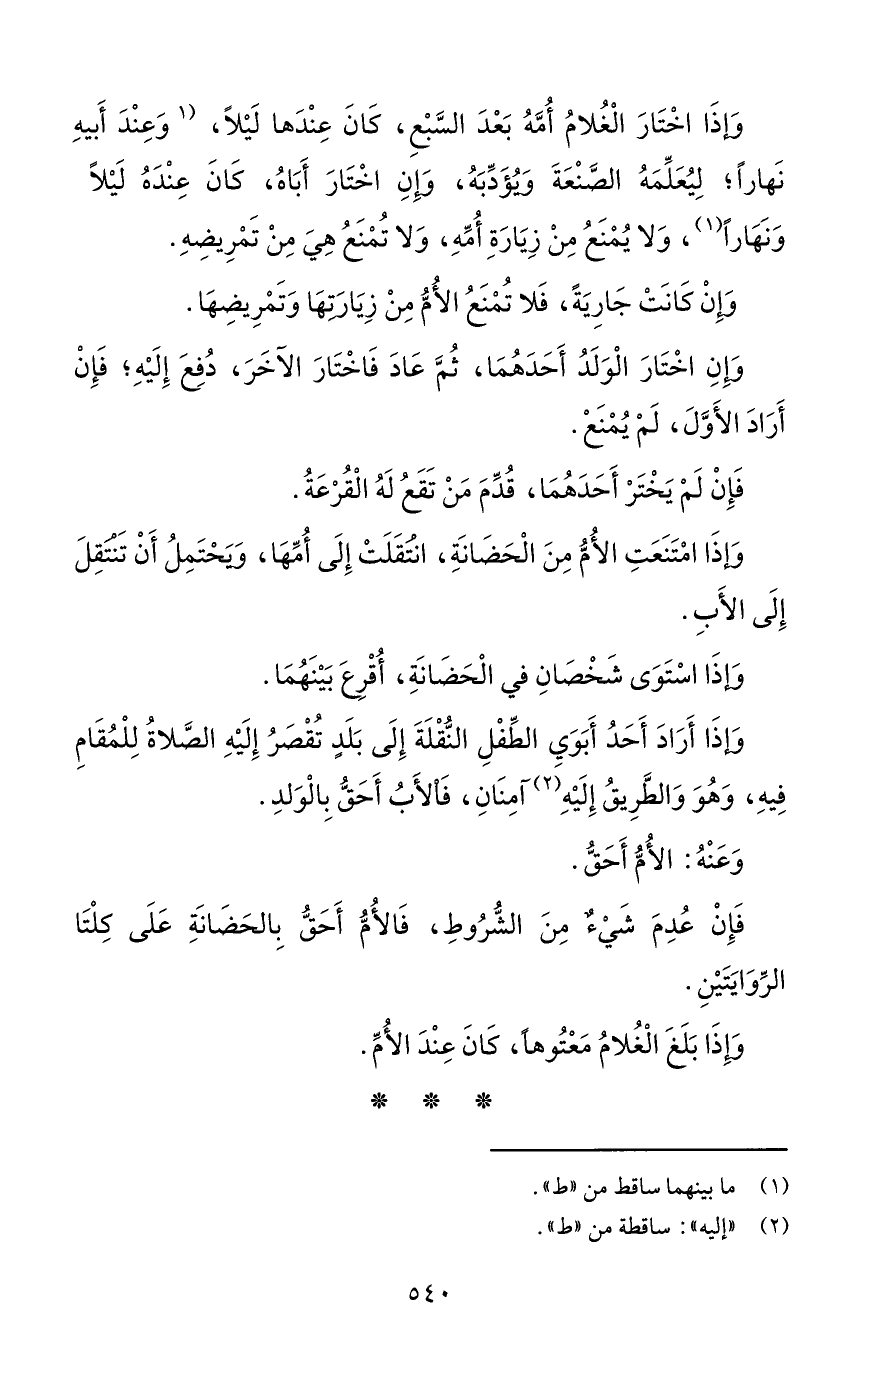 وَإِذَا اخْتَارَ الْغُلامُ أُمَّهُ بَعْدَ السَّبْعِ، كَانَ عِنْدَها لَيْلاً، (١ وَعِنْدَ أَبيهِ
نَهاراً؛ لِيُعَلِّمَهُ الصَّنْعَةَ وَيُؤَدِّبَهُ، وَإِنِ اخْتَارَ أَبَاهُ، كَانَ عِنْدَهُ لَيْلاً
وَنَهَاراً(١)، وَلا يُمْنَعُ مِنْ زِيَارَةِ أُمِّهِ، وَلا تُمْنَعُ هِيَ مِنْ تَمْرِيضِهِ.
وَإِنْ كَانَتْ جَارِيَةً، فَلا تُمْنَعُ الأُمُّ مِنْ زِيَارَتِهَا وَتَمْرِيضِهَا.
وَإِنِ اخْتَارَ الْوَلَدُ أَحَدَهُمَا، ثُمَّ عَادَ فَاخْتَارَ الآخَرَ، دُفِعَ إِلَيْهِ؛ فَإِنْ
أَرَادَ الأَوَّلَ، لَمْ يُمْنَعْ.
فَإِنْ لَمْ يَخْتَرْ أَحَدَهُمَا، قُدِّمَ مَنْ تَقَعُ لَهُ الْقُرْعَةُ.
وَإِذَا امْتَنَعَتِ الأُمُّ مِنَ الْحَضَانَةِ، انْتُقَلَتْ إِلَى أُمِّهَا، وَيَحْتَمِلُ أَنْ تَنْتَقِلَ
إِلَى الأَبِ.
وَإِذَا اسْتَوَى شَخْصَانِ في الْحَضَانَةِ، أُقْرِعَ بَيْنَهُمَا.
وَإِذَا أَرَادَ أَحَدُ أَبَوَيِ الطِّفْلِ النُّقْلَةَ إِلَى بَلَدٍ تُقْصَرُ إِلَيْهِ الصَّلاةُ لِلْمُقَامِ
فِيهِ، وَهُوَ وَالطَّرِيقُ إِلَيْهِ(٢) آمِنَانِ، فَالأَبُ أَحَقُّ بِالْوَلدِ.
وَعَنْهُ: الأُمُّ أَحَقُّ.
فَإِنْ عُدِمَ شَيْءٌ مِنَ الشُّرُوطِ، فَالأُمُّ أَحَقُّ بِالحَضَانَةِ عَلَى كِلْتَا
الرِّوَايَتَيْنِ.
وَإِذَا بَلَغَ الْغُلامُ مَعْتُوهاً، كَانَ عِنْدَ الأُمِّ.
* * *
(١) ما بينهما ساقط من «ط».
(٢) «إليه»: ساقطة من «ط».
٥٤٠